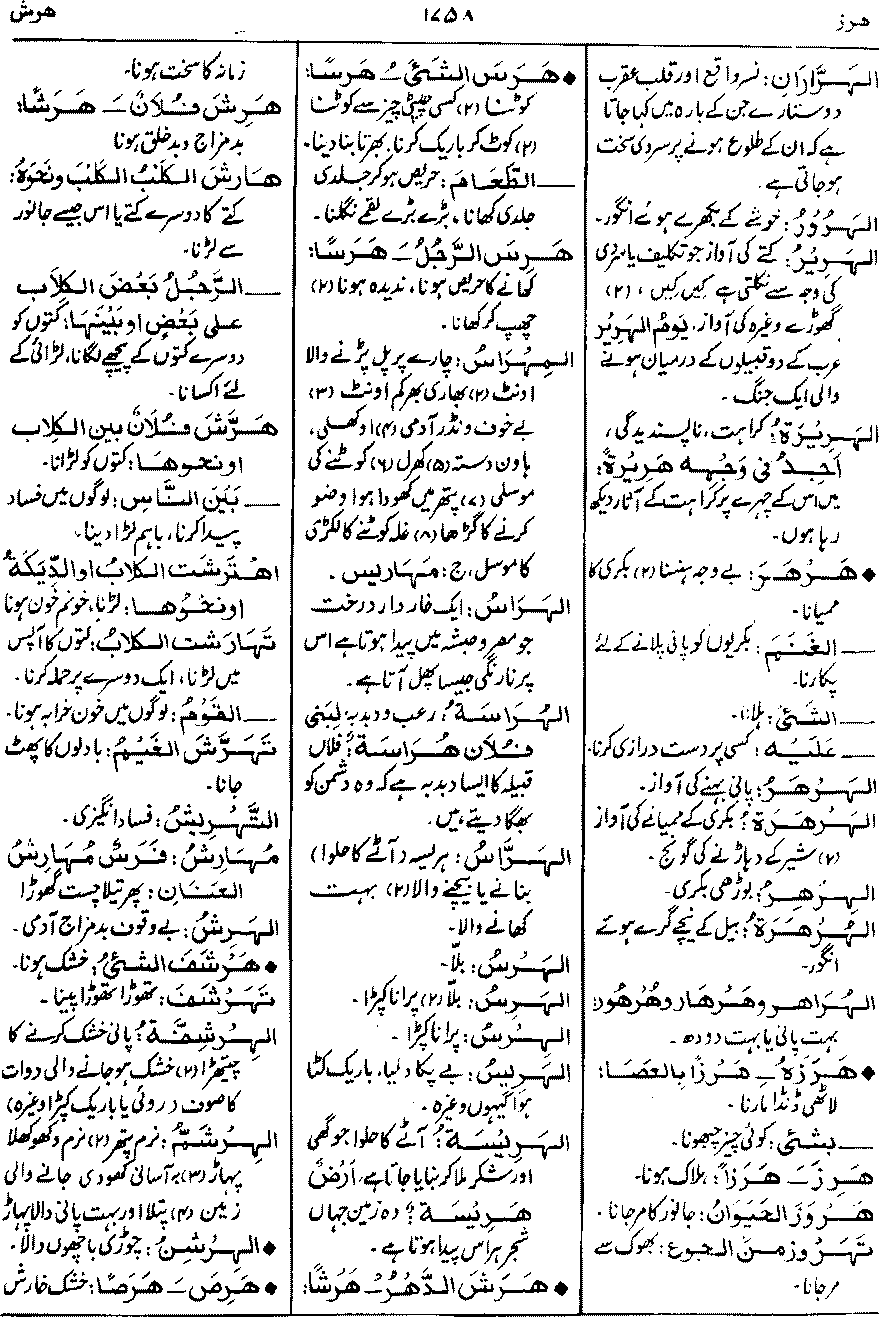 هرز
۱۷۵۸
هرش
الهَرَّارَانِ: نسر واقع اور قلب عقرب
دو ستارے جن کے بارہ میں کہا جاتا
ہے کہ ان کے طلوع ہونے پر سردی سخت
ہو جاتی ہے۔
الهَرُوْرُ: خوشے کے بکھرے ہوئے انگور۔
الهَرِيْرُ: کتے کی آواز جو تکلیف یا سردی
کی وجہ سے نکلتی ہے کیں کیں، (۲)
گھوڑے وغیرہ کی آواز۔ يَوْمُ الهَرِيْرِ
عرب کے دو قبیلوں کے درمیان ہونے
والی ایک جنگ۔
الهَرِيْرَةُ: کراہت، ناپسندیدگی،
اَجِدُ فِي وَجْهِهِ هَرِيْرَةً:
میں اس کے چہرے پر کراہت کے آثار دیکھ
رہا ہوں۔
♦ هَرْهَرَ: بے وجہ ہنسنا (۲) بکری کا
ممیانا۔
— الغَنَمَ: بکریوں کو پانی پلانے کے لئے
پکارنا۔
— الشَّئَ: ہلانا۔
— عَلَيْهِ: کسی پر دست درازی کرنا۔
الهَرْهَرُ: پانی بہنے کی آواز۔
الهَرْهَرَةُ: بکری کے ممیانے کی آواز
(۲) شیر کے دہاڑنے کی گونج۔
الهِرْهِرُ: بوڑھی بکری۔
الهُرْهَرَةُ: بیل کے نیچے گرے ہوئے
انگور۔
الهُرَاهِر وهَرْهَار وهُرْهُون:
بہت پانی یا بہت دودھ۔
♦ هَرَزَهُ ـِ هَرْزًا بِالعَصَا:
لاٹھی ڈنڈا مارنا۔
— بِشَئٍ: کوئی چیز چبھونا۔
هَرِزَ ـَ هَرَزًا: ہلاک ہونا۔
هَرْوَزَ الحَيَوَانُ: جانور کا مر جانا۔
تَهَرْوَزَ مِنَ الجوع: بھوک سے
مر جانا۔
♦ هَرَسَ الشَّئَ ـُ هَرْسًا:
کوٹنا (۲) کسی چپٹی چیز سے کوٹنا
(۲) کوٹ کر باریک کرنا، بھرتا بنا دینا۔
— الطَّعَامَ: حریص ہو کر جلدی
جلدی کھانا، بڑے بڑے لقمے نگلنا۔
هَرِسَ الرَّجُلُ ـَ هَرَسًا:
کھانے کا حریص ہونا، ندیدہ ہونا (۲)
چھپ کر کھانا۔
المِهْرَاسُ: چارے پر پل پڑنے والا
اونٹ (۲) بھاری بھرکم اونٹ (۳)
بے خوف و نڈر آدمی (۴) اوکھلی،
ہاون دستہ (۵) کھرل (۶) کوٹنے کی
موسلی (۷) پتھر میں کھودا ہوا وضو
کرنے کا گڑھا (۸) غلہ کوٹنے کا لکڑی
کا موسل، ج: مَهَارِيس۔
الهَرَاسُ: ایک خاردار درخت
جو مصر و حبشہ میں پیدا ہوتا ہے اس
پر نارنگی جیسا پھل آتا ہے۔
الهُرَاسَةُ: رعب و دبدبہ لِبَنِي
فُلَان هُرَاسَةٌ: فلاں
قبیلہ کا ایسا دبدبہ ہے کہ وہ دشمن کو
بھگا دیتے ہیں۔
الهَرَّاسُ: ہریسہ (آٹے کا حلوا)
بنانے یا بیچنے والا (۲) بہت
کھانے والا۔
الهَرْسُ: بلّا۔
الهَرِسُ: بلّا (۲) پرانا کپڑا۔
الهِرْسُ: پرانا کپڑا۔
الهَرِيسُ: بے پکا دلیا، باریک کٹا
ہوا گیہوں وغیرہ۔
الهَرِيْسَةُ: آٹے کا حلوا جو گھی
اور شکر ملا کر بنایا جاتا ہے، اَرْضٌ
هَرِيْسَةٌ: وہ زمین جہاں
شجر ہراس پیدا ہوتا ہے۔
♦ هَرَشَ الدَّهْرُ ـُ هَرْشًا:
زمانہ کا سخت ہونا۔
هَرِشَ فُلَانٌ ـَ هَرَشًا:
بد مزاج و بد خلق ہونا
هَارَشَ الكَلْبُ الكَلْبَ ونَحْوَهُ:
کتے کا دوسرے کتے یا اس جیسے جانور
سے لڑنا۔
— الرَّجُلُ بَعْضَ الكِلَاب
على بَعْضٍ او بَيْنَهَا: کتوں کو
دوسرے کتوں کے پیچھے لگانا، لڑائی کے
لئے اکسانا۔
هَرَّشَ فُلَانٌ بين الكِلَاب
او نحوها: کتوں کو لڑانا۔
— بَيْنَ النَّاسِ: لوگوں میں فساد
پیدا کرنا، باہم لڑا دینا۔
اهْتَرَشَت الكلابُ او الدِّيكَةُ
او نحوها: لڑنا، خونم خون ہونا
تَهَارَشَت الكلابُ: کتوں کا آپس
میں لڑنا، ایک دوسرے پر حملہ کرنا۔
— القَوْمُ: لوگوں میں خون خرابہ ہونا۔
تَهَرَّشَ الغَيْمُ: بادلوں کا پھٹ
جانا۔
التَّهْرِيْشُ: فساد انگیزی۔
مُهَارِشُ: فَرَسٌ مُهَارِشُ
العِنَان: پھرتیلا چست گھوڑا
الهَرِشُ: بے وقوف بد مزاج آدمی۔
♦ هَرْشَفَ الشَّئُ: خشک ہونا۔
تَهَرْشَفَ: تھوڑا تھوڑا پینا۔
الهِرْشَفَّةُ: پانی خشک کرنے کا
چیتھڑا (۲) خشک ہو جانے والی دوات
کا صوف (روئی یا باریک کپڑا وغیرہ)
الهِرْشَمُّ: نرم پتھر (۲) نرم و کھوکھلا
پہاڑ (۳) بہ آسانی کھودی جانے والی
زمین (۴) پتلا اور بہت پانی والا پہاڑ
♦ الهِرْشِنُ: چوڑی باچھوں والا۔
♦ هَرِصَ ـَ هَرَصًا: خشک خارش